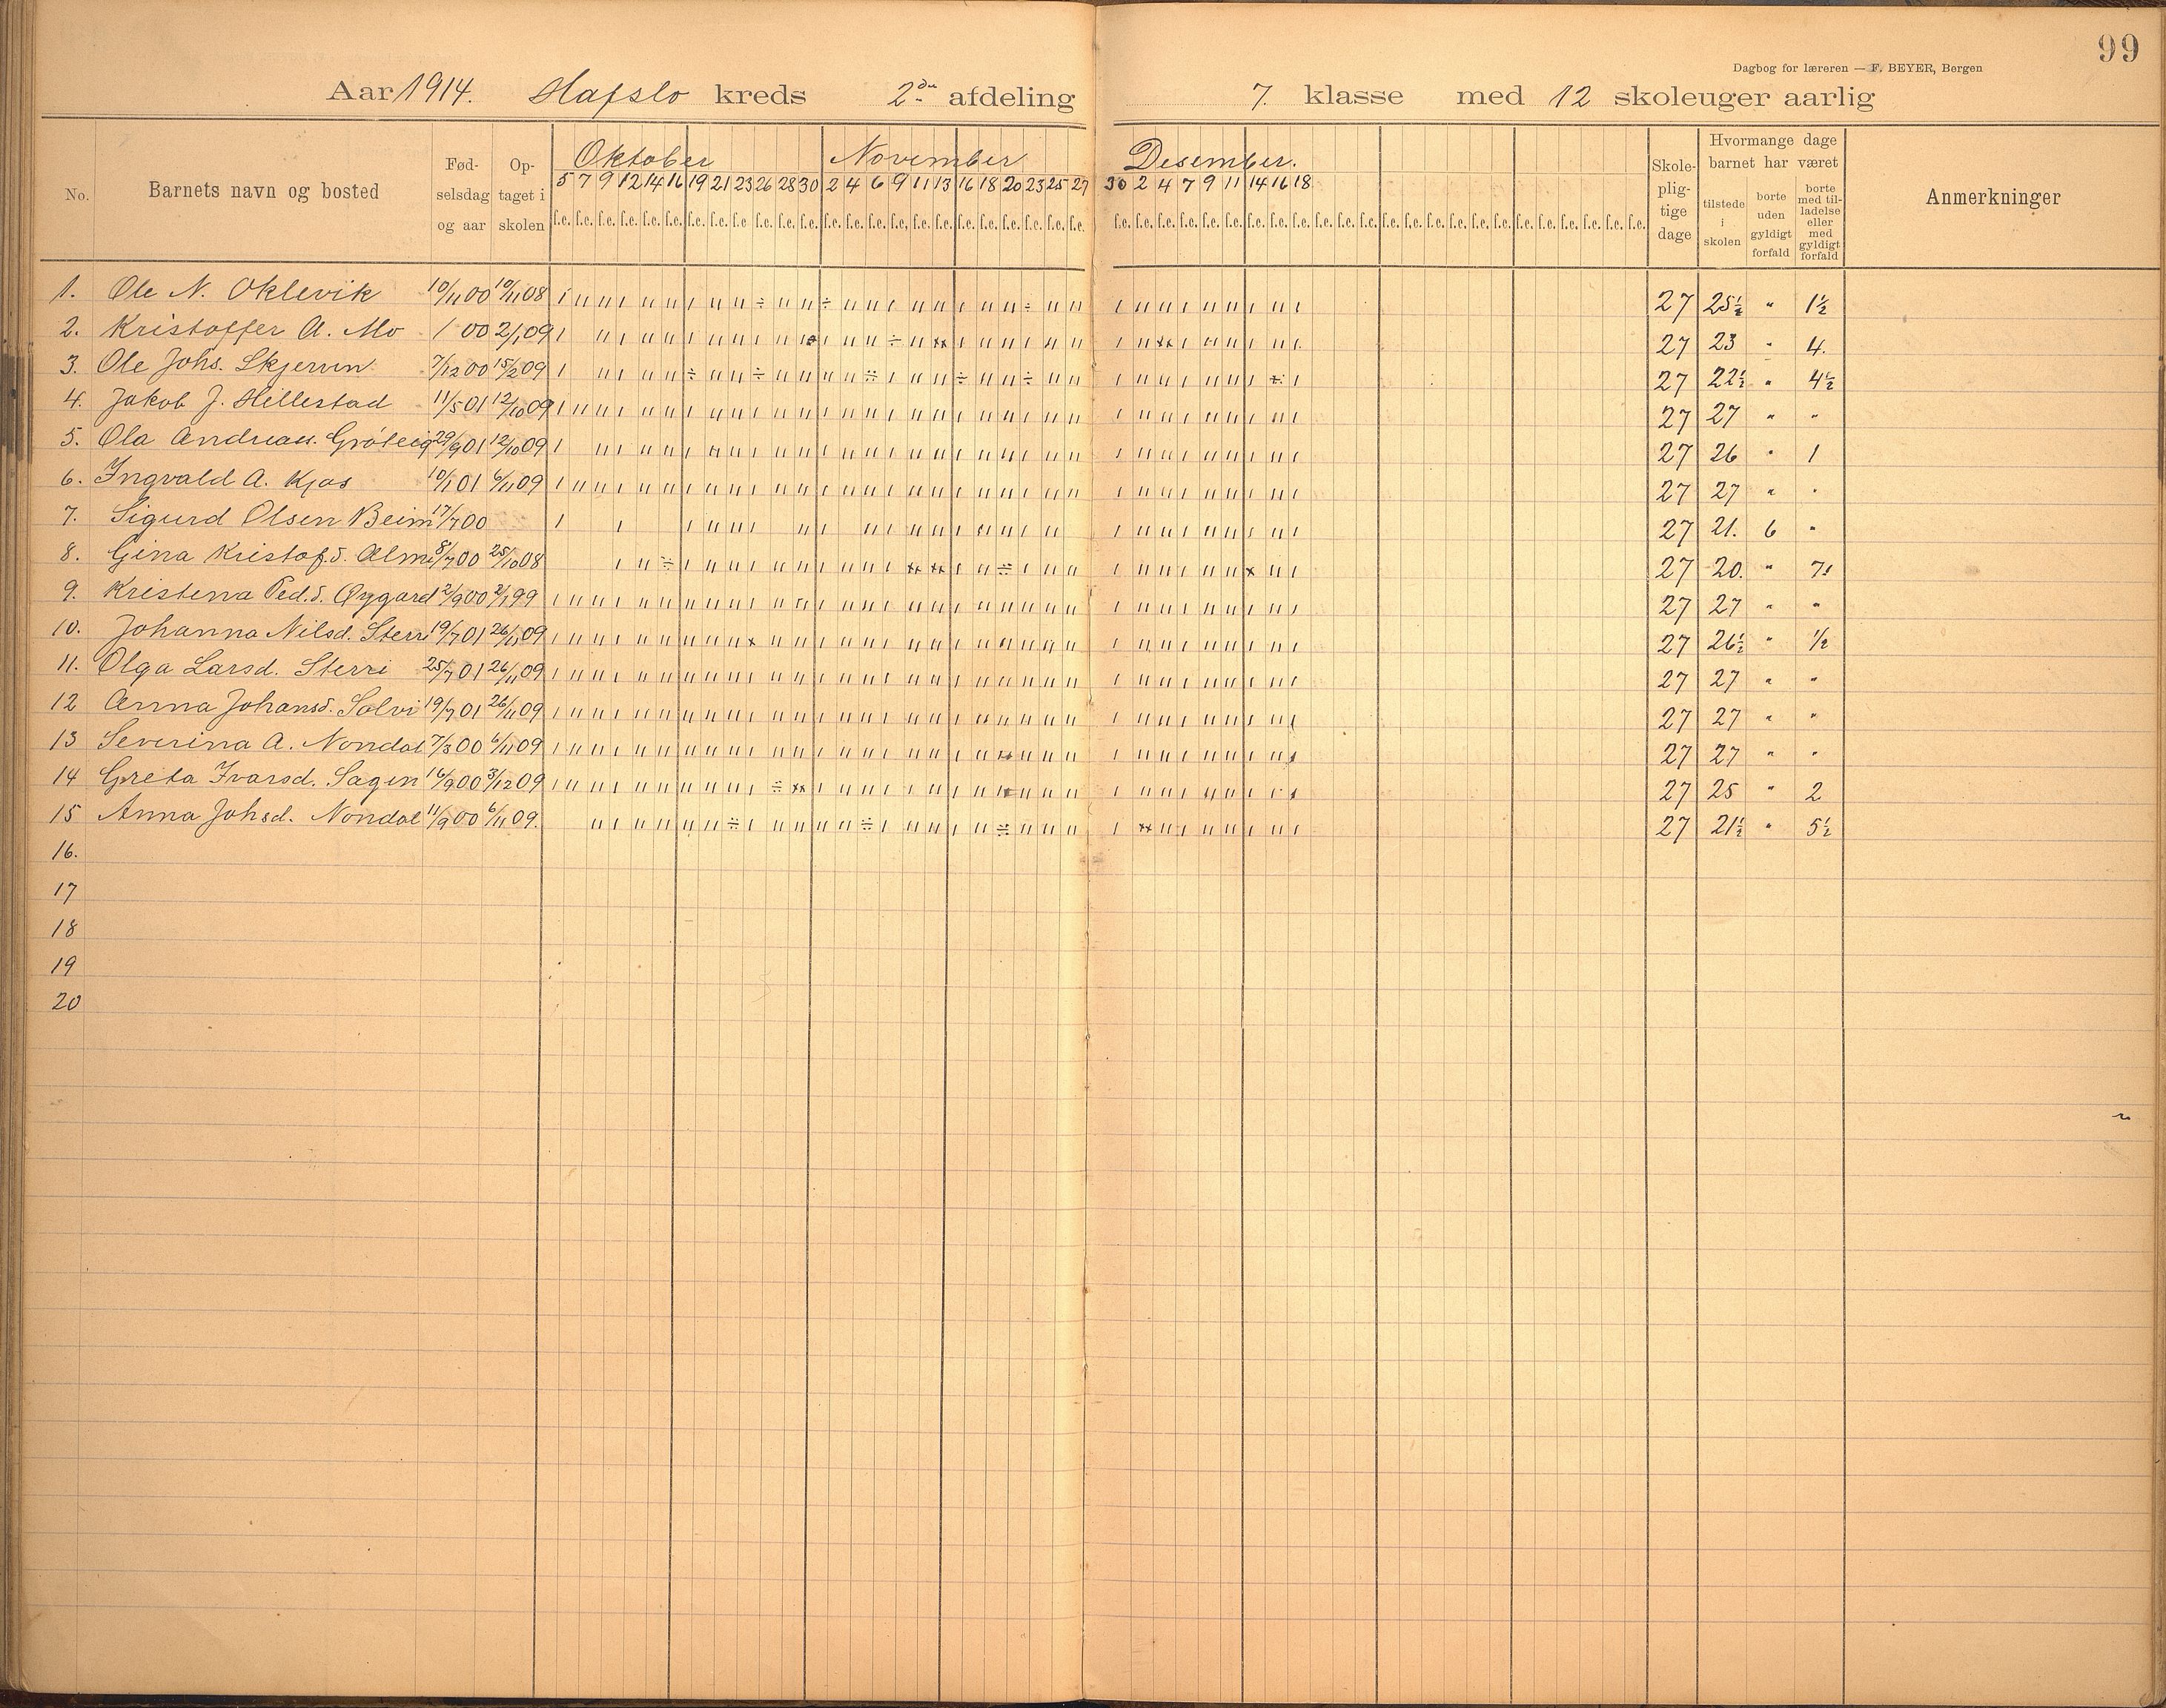 99
Dagbog for læreren — F. BEYER, Bergen
Aar 1914. Hafslo kreds 2den afdeling 7. klasse med 12 skoleuger aarlig
No. Barnets navn og bosted Fødselsdag og aar Optaget i skolen Oktober November Desember. Skolepligtige dage Hvormange dage barnet har været tilstede i skolen borte uden gyldigt forfald borte med tilladelse eller med gyldigt forfald Anmerkninger
5 7 9 12 14 16 19 21 23 26 28 30 2 4 6 9 11 13 16 18 20 23 25 27 30 2 4 7 9 11 14 16 18
1. Ole N. Oklevik 10/11 00 10/11 08 27 25½ " 1½
2. Kristoffer A. Mo 1 00 2/1 09 27 23 " 4.
3. Ole Johs. Skjerven 7/12 00 15/2 09 27 22½ " 4½
4. Jakob J. Hillestad 11/5 01 12/10 09 27 27 " "
5. Ola Andreas. 29/9 01 12/10 09 27 26 " 1
6. Ingvald A. Kjos 10/1 01 6/11 09 27 27 " "
7. Sigurd Olsen Beim 17/7 00 27 21. 6 "
8. Gina Kristof.d. Alm 8/7 00 25/10 08 27 20. " 7.
9. Kristena Ped.d. Øygard 2/9 00 2/1 99 27 27 " "
10. Johanna Nilsd. Sterri 19/7 01 26/11 09 27 26½ " 1/2
11. Olga Larsd. Sterri 25/7 01 26/11 09 27 27 " "
12 Anna Johansd. Solvi 19/7 01 26/11 09 27 27 " "
13 Severina A. Nondal 7/3 00 6/11 09 27 27 " "
14 Greta Ivarsd. Sagen 16/9 00 3/12 09 27 25 " 2
15 Anna Johsd. Nondal 11/9 00 6/11 09. 27 21½ " 5½
16.
17
18
19
20